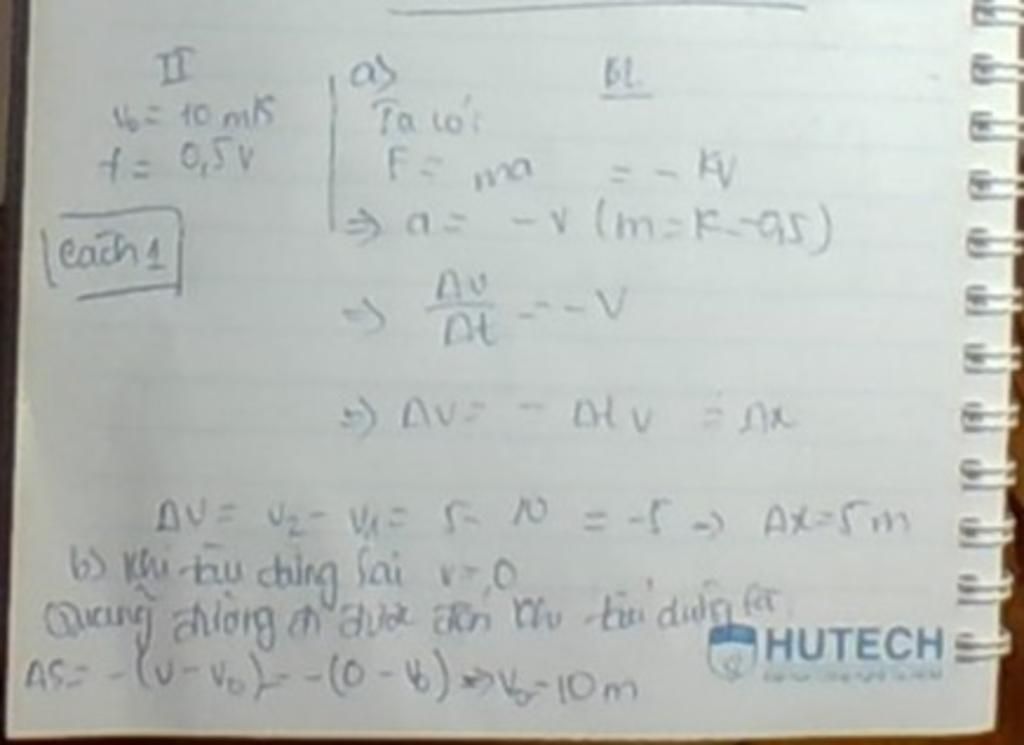 II
V₀ = 10 m/s
f = 0,5V
Cách 1
a)
BL
Ta có:
F = ma = - KV
=> a = - V (m = K = 0,5)
=> ΔV/Δt = - V
=> ΔV = - Δt V = Δx
ΔV = V₂ - V₁ = 5 - 10 = -5 => Δx = 5 m
b) Khi tàu dừng lại v = 0
Quãng đường đi được đến khi tàu dừng
ΔS = - (V - V₀) = - (0 - V₀) => V₀ = 10 m
HUTECH